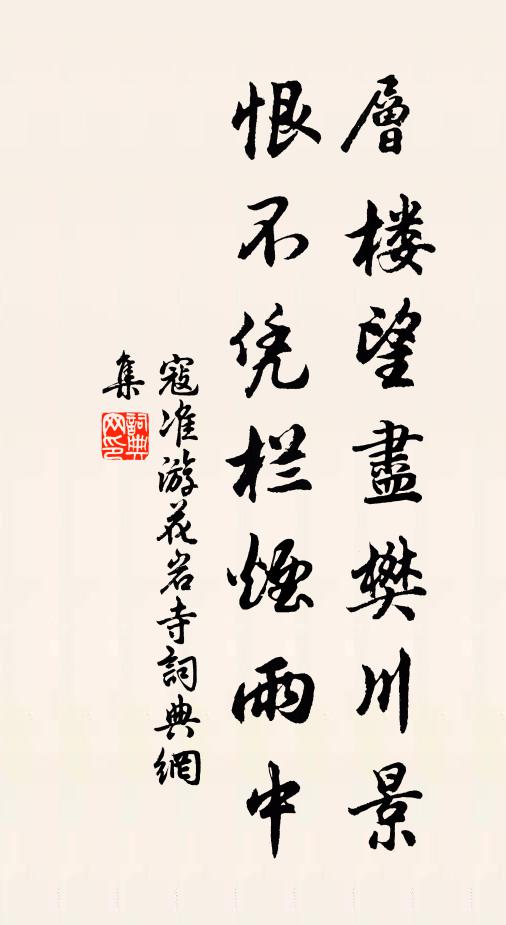 層楼望盡樊川景
恨不凭栏煙雨中
寇准游花岩寺詞典網
集
詞典
网印